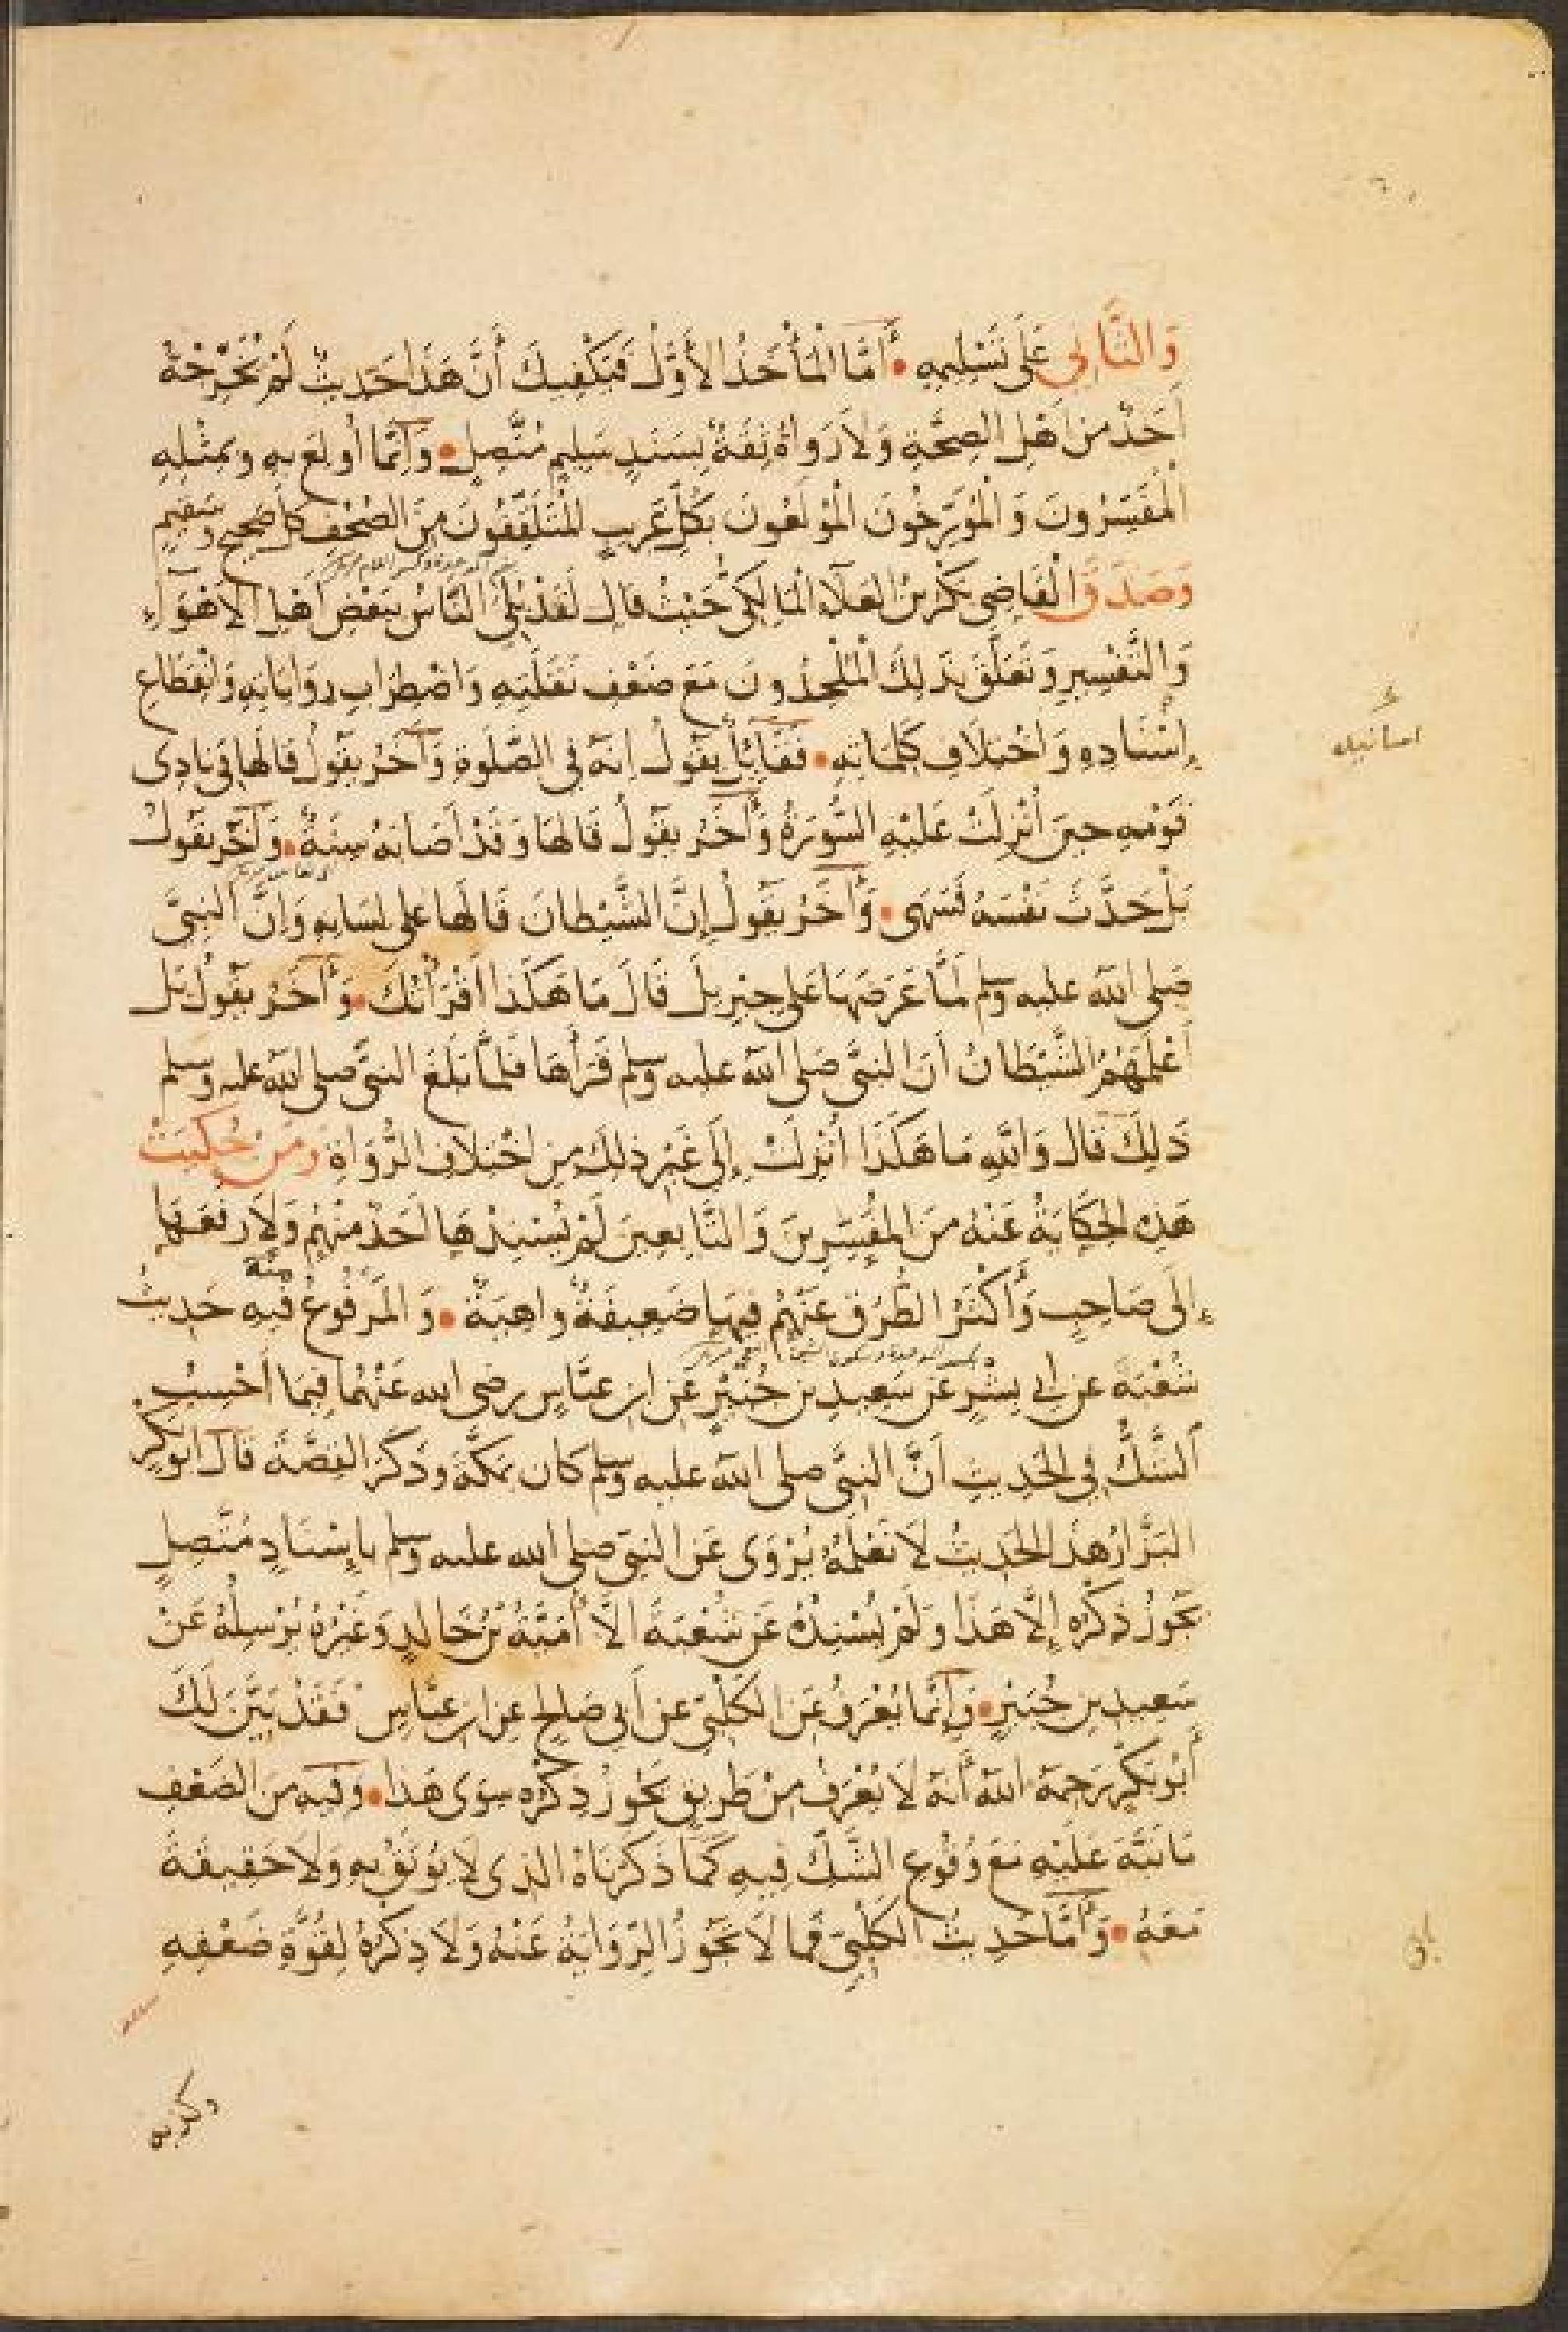 وَالثَّانِي عَلَى تَسْلِيمِهِ • أَمَّا الْمَأْخَذُ الْأَوَّلُ فَيَكْفِيكَ أَنَّ هَذَا حَدِيثٌ لَمْ يُخَرِّجْهُ
أَحَدٌ مِنْ أَهْلِ الصِّحَّةِ وَلَا رَوَاهُ ثِقَةٌ بِسَنَدٍ سَلِيمٍ مُتَّصِلٍ • وَإِنَّمَا أُولِعَ بِهِ وَبِمِثْلِهِ
الْمُفَسِّرُونَ وَالْمُؤَرِّخُونَ الْمُولَعُونَ بِكُلِّ غَرِيبٍ الْمُتَلَقِّفُونَ مِنَ الصُّحُفِ كُلَّ صَحِيحٍ وَسَقِيمٍ
وَصَدَقَ الْقَاضِي بَكْرُ بْنُ الْعَلَاءِ الْمَالِكِيُّ حَيْثُ قَالَ لَقَدْ بُلِيَ النَّاسُ بِبَعْضِ أَهْلِ الْأَهْوَاءِ
وَالتَّفْسِيرِ وَتَعَلَّقَ بِذَلِكَ الْمُلْحِدُونَ مَعَ ضَعْفِ نَقَلَتِهِ وَاضْطِرَابِ رِوَايَاتِهِ وَانْقِطَاعِ
إِسْنَادِهِ وَاخْتِلَافِ كَلِمَاتِهِ • فَقَائِلٌ يَقُولُ إِنَّهُ فِي الصَّلَوةِ وَآخَرُ يَقُولُ قَالَهَا فِي نَادِي
قَوْمِهِ حِينَ أُنْزِلَتْ عَلَيْهِ السُّورَةُ وَآخَرُ يَقُولُ قَالَهَا وَقَدْ أَصَابَهُ سِنَةٌ • وَآخَرُ يَقُولُ
بَلْ حَدَّثَ نَفْسَهُ فَسَهَى • وَآخَرُ يَقُولُ إِنَّ الشَّيْطَانَ قَالَهَا عَلَى لِسَانِهِ وَإِنَّ النَّبِيَّ
صَلَى اللَّهُ عليه وسلم لَمَّا عَرَضَهَا عَلَى جِبْرِيلَ قَالَ مَا هَكَذَا أَقْرَأْتُكَ • وَآخَرُ يَقُولُ بَلْ
أَعْلَمَهُمُ الشَّيْطَانُ أَنَّ النَّبِيَّ صَلى الله عليه وسلم قَرَأَهَا فَلَمَّا بَلَغَ النبيَّ صلى الله عليه وسلم
ذَلِكَ قَالَ وَاللَّهِ مَا هَكَذَا أُنْزِلَتْ إِلَى غَيْرِ ذَلِكَ مِنِ اخْتِلَافِ الرُّوَاةِ وَمَنْ حُكِيَتْ
هَذِهِ الْحِكَايَةُ عَنْهُ مِنَ الْمُفَسِّرِينَ وَالتَّابِعِينَ لَمْ يُسْنِدْهَا أَحَدٌ مِنْهُمْ وَلَا رَفَعَهَا
إِلَى صَاحِبٍ وَأَكْثَرُ الطُّرُقِ عَنْهُمْ فِيهَا ضَعِيفَةٌ وَاهِيَةٌ • وَالْمَرْفُوعُ فِيهِ حَدِيثُ
منه
شُعْبَةَ عن ابي بِشْرٍ عَنْ سَعِيدِ بْنِ جُبَيْرٍ عَنِ ابْنِ عَبَّاسٍ رضى الله عَنْهُمَا فِيمَا أَحْسِبُ
الشَّكُّ فِي الْحَدِيثِ أَنَّ النبيَّ صلى الله عليه وسلم كَانَ بِمَكَّةَ وَذَكَرَ الْقِصَّةَ قَالَ أَبُو بَكْرٍ
الْبَزَّارُ هَذَا الْحَدِيثُ لَا نَعْلَمُهُ يُرْوَى عَنِ النبيِّ صلى الله عليه وسلم بِإِسْنَادٍ مُتَّصِلٍ
يَجُوزُ ذِكْرُهُ إِلَّا هَذَا وَلَمْ يُسْنِدْهُ عَنْ شُعْبَةَ إِلَّا أُمَيَّةُ بْنُ خَالِدٍ وَغَيْرُهُ يُرْسِلُهُ عَنْ
سَعِيدِ بْنِ جُبَيْرٍ • وَإِنَّمَا يُعْرَفُ عَنِ الْكَلْبِيِّ عَنْ أَبِي صَالِحٍ عَنِ ابْنِ عَبَّاسٍ فَقَدْ بَيَّنَ لَكَ
أَبُو بَكْرٍ رَحِمَهُ اللَّهُ أَنَّهُ لَا يُعْرَفُ مِنْ طَرِيقٍ يَجُوزُ ذِكْرُهُ سِوَى هَذَا • وَفِيهِ مِنَ الضَّعْفِ
مَا نَبَّهَ عَلَيْهِ مَعَ وُقُوعِ الشَّكِّ فِيهِ كَمَا ذَكَرْنَاهُ الذي لَا يُوثَقُ بِهِ وَلَا حَقِيقَةَ
مَعَهُ • وَأَمَّا حَدِيثُ الْكَلْبِيِّ فَمِمَّا لَا تَجُوزُ الرِّوَايَةُ عَنْهُ وَلَا ذِكْرُهُ لِقُوَّةِ ضَعْفِهِ
وكذبه